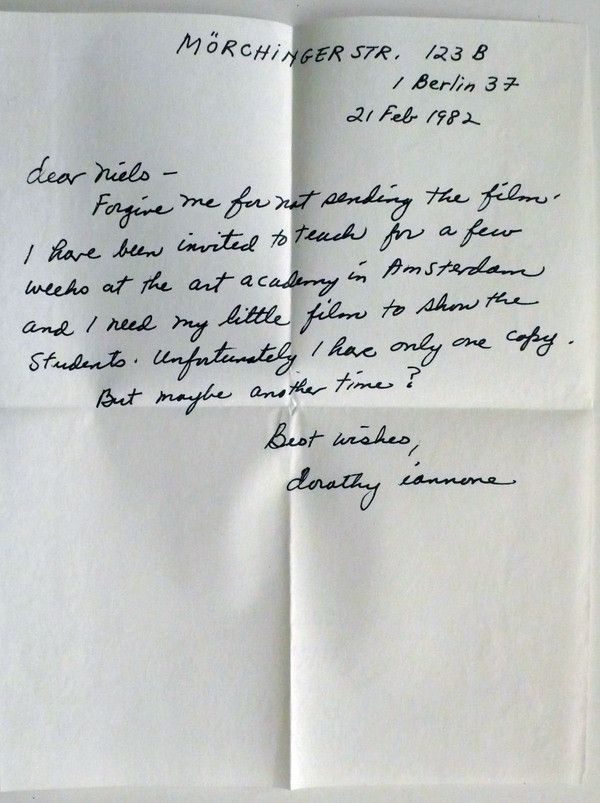 MÖRCHINGER STR. 123 B
1 Berlin 37
21 Feb 1982
dear Niels —
Forgive me for not sending the film.
I have been invited to teach for a few
weeks at the art academy in Amsterdam
and I need my little film to show the
students. Unfortunately I have only one copy.
But maybe another time?
Best wishes,
dorothy iannone